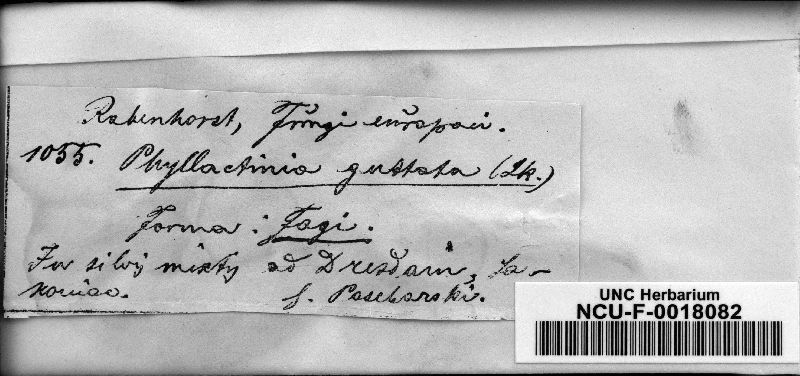 Rabenhorst, Fŭngi eŭropaei.
1055. Phyllactinia guttata (Lk.)
Forma: Fagi.
In silvis mixtis ad Dresdam, Sa-
xoniae.
f. Poscharski.
UNC Herbarium
NCU-F-0018082